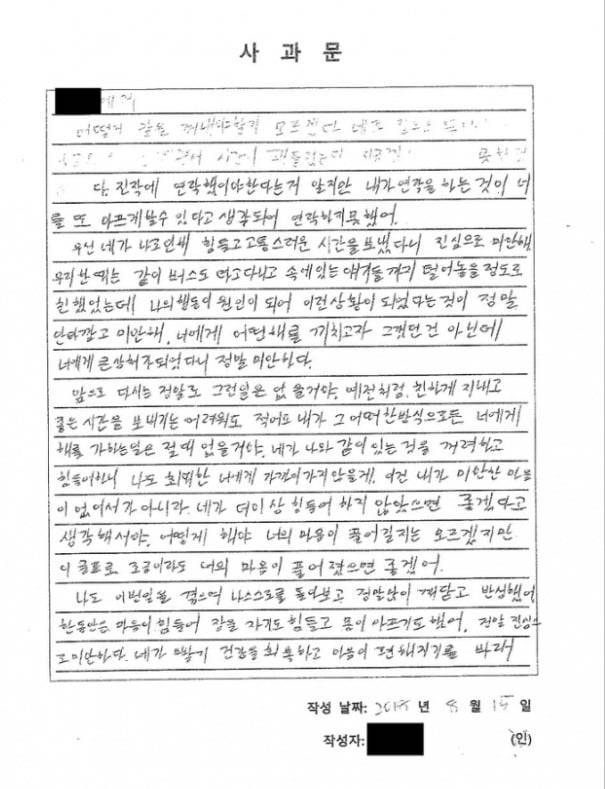 사 과 문
에게
어떻게 말을 꺼내야할지 모르겠다
시간이
다. 진작에 연락했어야한다는거 알지만 내가 연락을 하는 것이 너
를 또 아프게할수 있다고 생각되어 연락하지못했어.
우선 네가 나로인해 힘들고 고통스러운 시간을 보냈다니 진심으로 미안해
우리 한때는 같이 버스도 타고다니고 속에있는 얘기들까지 털어놓을정도로
친했었는데 나의행동이 원인이 되어 이런상황이 되었다는것이 정말
안타깝고 미안해. 너에게 어떤해를 끼치고자 그랬던건 아닌데
너에게 큰상처가되었다니 정말 미안하다.
앞으로 다시는 정말로 그런일은 없을거야. 예전처럼 친하게 지내고
좋은 시간을 보내기는 어려워도 적어도 내가 그 어떠한방식으로든 너에게
해를 가하는일은 절대 없을거야. 네가 나와 같이 있는 것을 꺼려하고
힘들어하니 나도 최대한 너에게 가까이가지않을게. 이건 내가 미안한 마음
이 없어서가 아니라 네가 더이상 힘들어 하지 않았으면 좋겠다고
생각해서야. 어떻게 해야 너의 마음이 풀어질지는 모르겠지만
이 글로 조금이라도 너의 마음이 풀어졌으면 좋겠어.
나도 이번일을 겪으며 나스스로를 돌아보고 정말많이 깨닫고 반성했어.
한동안은 마음이 힘들어 잠을 자기도 힘들고 몸이 아프기도했어. 정말 진심으
로미안하다. 네가 건강을 회복하고 마음이 편해지기를 바래
작성 날짜: 2018 년 8 월 15 일
작성자: (인)